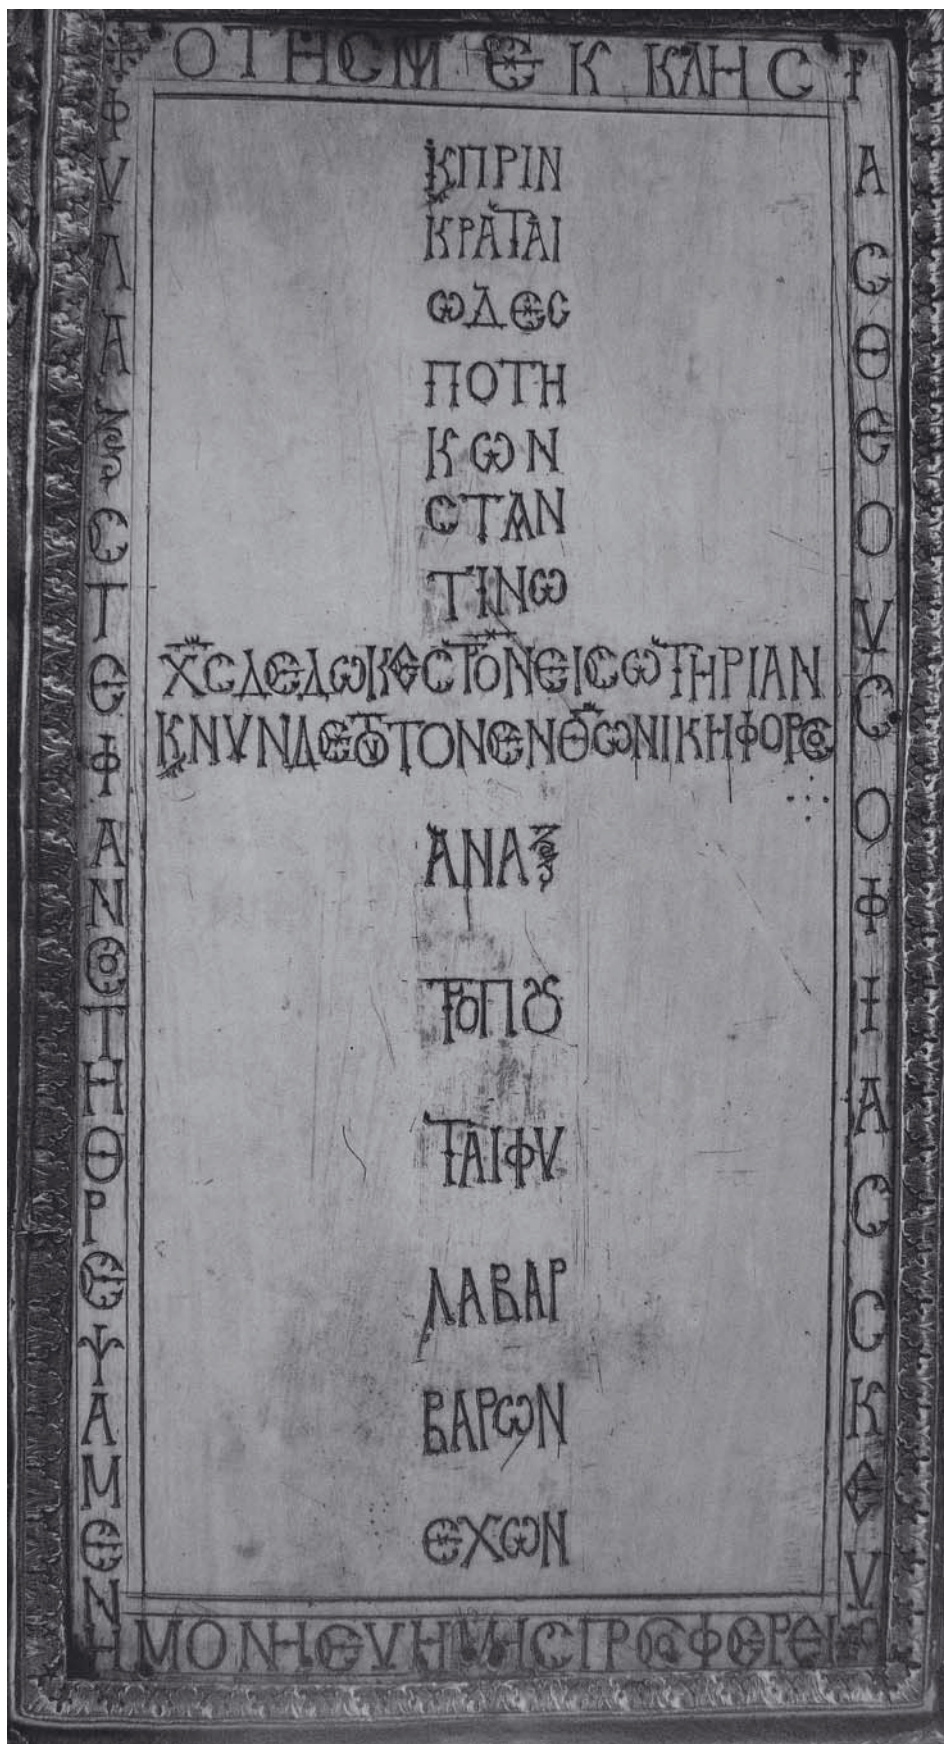 + ΟΤΗСΜ ЄΚΚΛΗСΙ
ΑСΘЄΟΥСΟΦΙΑССΚЄΥΟ
ΦΥΛΑΞСΤЄΦΑΝΟСΤΗΘΡЄΨΑΜЄΝ
ΗΜΟΝΗЄΥΗΜΗСΠΡΟСΦЄΡЄΙ
ΚΠΡΙΝ
ΚΡΑΤΑΙ
ѠΔЄС
ΠΟΤΗ
ΚѠΝ
СΤΑΝ
ΤΙΝѠ
ΧСΔЄΔѠΚЄСΤΡΟΝЄΙССѠΤΗΡΙΑΝ
ΚΝΥΝΔЄΤΟΥΤΟΝЄΝΘѠΝΙΚΗΦΟΡΟС
ΑΝΑΞ
ΤΡΟΠȢ
ΤΑΙΦΥ
ΛΑΒΑΡ
ΒΑΡѠΝ
ЄΧѠΝ